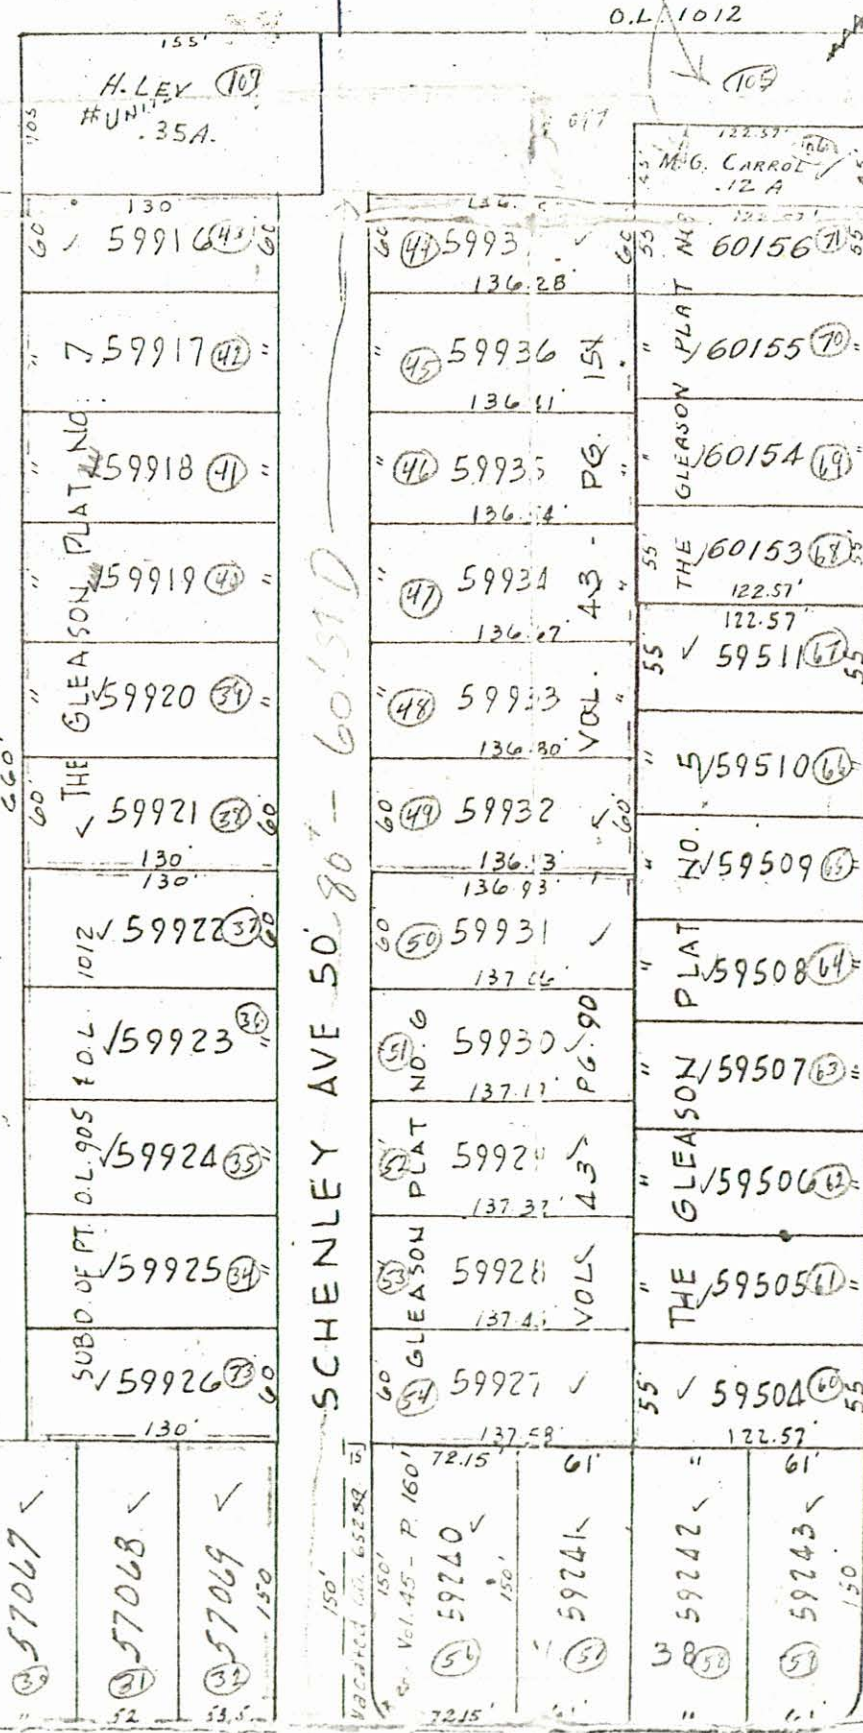 O.L. 1012
155'
H. LEV 107
.35A.
105
122.57'
M.G. CARROL
.12 A
130
60 ✓ 59916 43 60
" 7 59917 42 "
" ✓59918 41 "
" ✓59919 40 "
" ✓59920 39 "
60' ✓ 59921 38 60
130'
130'
✓ 59922 37 60
✓59923 36 "
✓59924 35 "
✓59925 34 "
✓59926 33 60
130'
THE GLEASON PLAT NO.
SUBD. OF PT. O.L. 905 & O.L. 1012
660'
SCHENLEY AVE 50'
80' - 60' STD
60 44 5993 ✓ 60
136.28'
" 45 59936
136.41'
" 46 59935 "
" 47 59934 "
136.67'
" 48 59933 "
136.80'
60 49 59932 60'
136.93'
60 50 59931 ✓
137.06'
51 59930
52 5992
137.32'
53 59928
137.45'
60 54 59927 ✓
137.58'
VOL. 43 - PG. 15
GLEASON PLAT NO. 6
VOL 43 PG. 90
55 60156 71 55
" 60155 70 "
" 60154 69 "
55' 60153 68 55'
122.57'
122.57'
55 ✓ 59511 67 55
" ✓59510 66 "
" ✓59509 65 "
" ✓59508 64 "
" ✓59507 63 "
" ✓59506 62 "
" ✓59505 61 "
55' ✓ 59504 60 55
122.57'
THE GLEASON PLAT NO
THE GLEASON PLAT NO. 5
57067 ✓
31 57068 ✓
32 57069 ✓
150
" 52 53.5
150'
Vacated
150'
Vol. 45 - P. 160'
72.15' 61' " 61'
56 59240 ✓
150'
59241 ✓
38 58 59242 ✓
59 59243 ✓
150
72.15' 61' " 61'